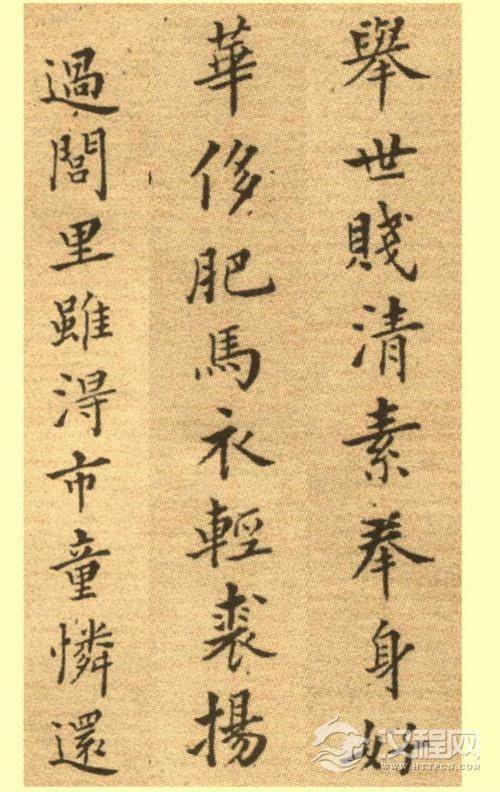 舉世賤清素奉身好
華侈肥馬衣輕裘揚
過閭里雖得市童憐還
汉程网
WWW.HTTPCN.COM